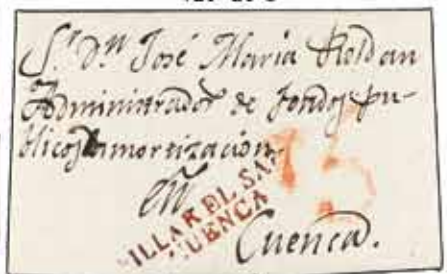 Sr. Dn. José Maria Roldan
Administrador de fondos pu-
blicos amortizacion
en
ILLAR EL SA
CUENCA
Cuenca.